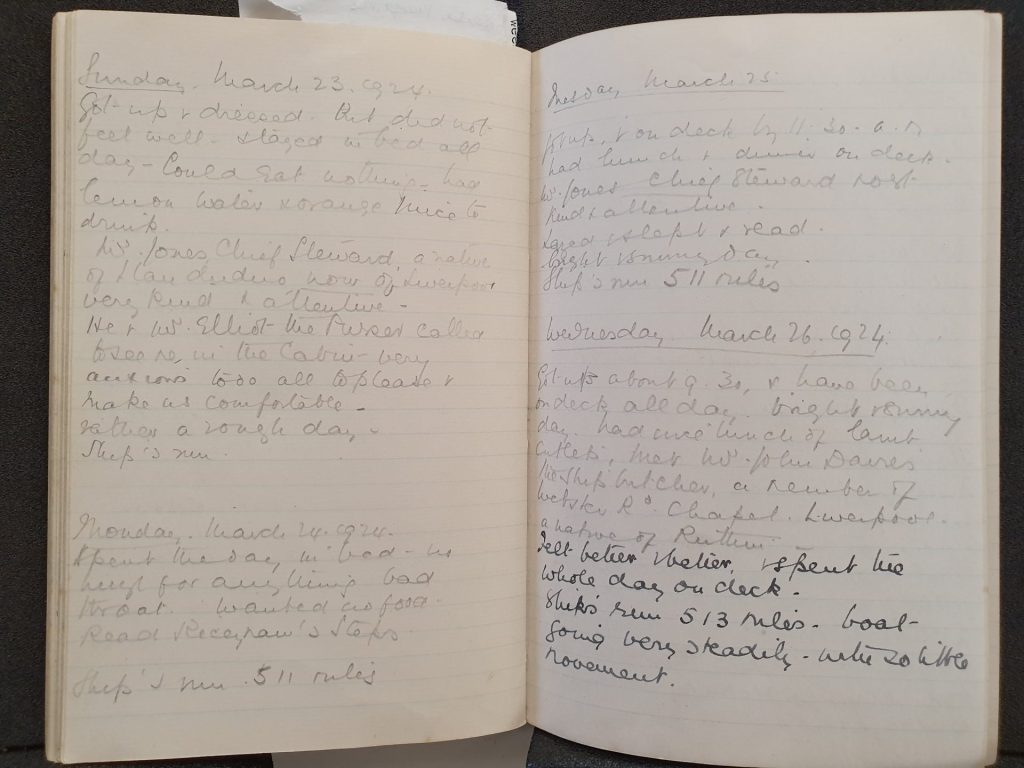 Sunday. March 23. 1924.
Got up & dressed. But did not
feel well. stayed in bed all
day - Could Eat nothing - had
lemon water & orange juice to
drink.
Mr. Jones Chief Steward, a native
of Llandudno now of Liverpool
very kind & attentive -
He & Mr. Elliot the Purser called
to see me, in the Cabin - very
anxious to do all to please &
make us comfortable -
rather a rough day -
Ship's run.
Monday. March 24. 1924.
Spent the day in bed - no
for anything bad
throat. Wanted no food.
Read Riceyman's Steps
Ship's run 511 miles
Tuesday March 25.
Got up & on deck by 11.30. a.m
had lunch & dinner on deck.
Mr. Jones Chief Steward most
kind & attentive.
& slept & read.
bright & sunny day.
Ship's run 511 miles
Wednesday March 26. 1924.
Got up about 9.30, & have been
on deck all day. bright & sunny
day. had nice lunch of lamb
Cutlets, met Mr. John Davies
the ship butcher, a member of
Webster Rd. Chapel. Liverpool.
a native of Ruthin -
Felt better & better, & spent the
whole day on deck.
Ship's run 513 miles - boat
going very steadily - with so little
movement.